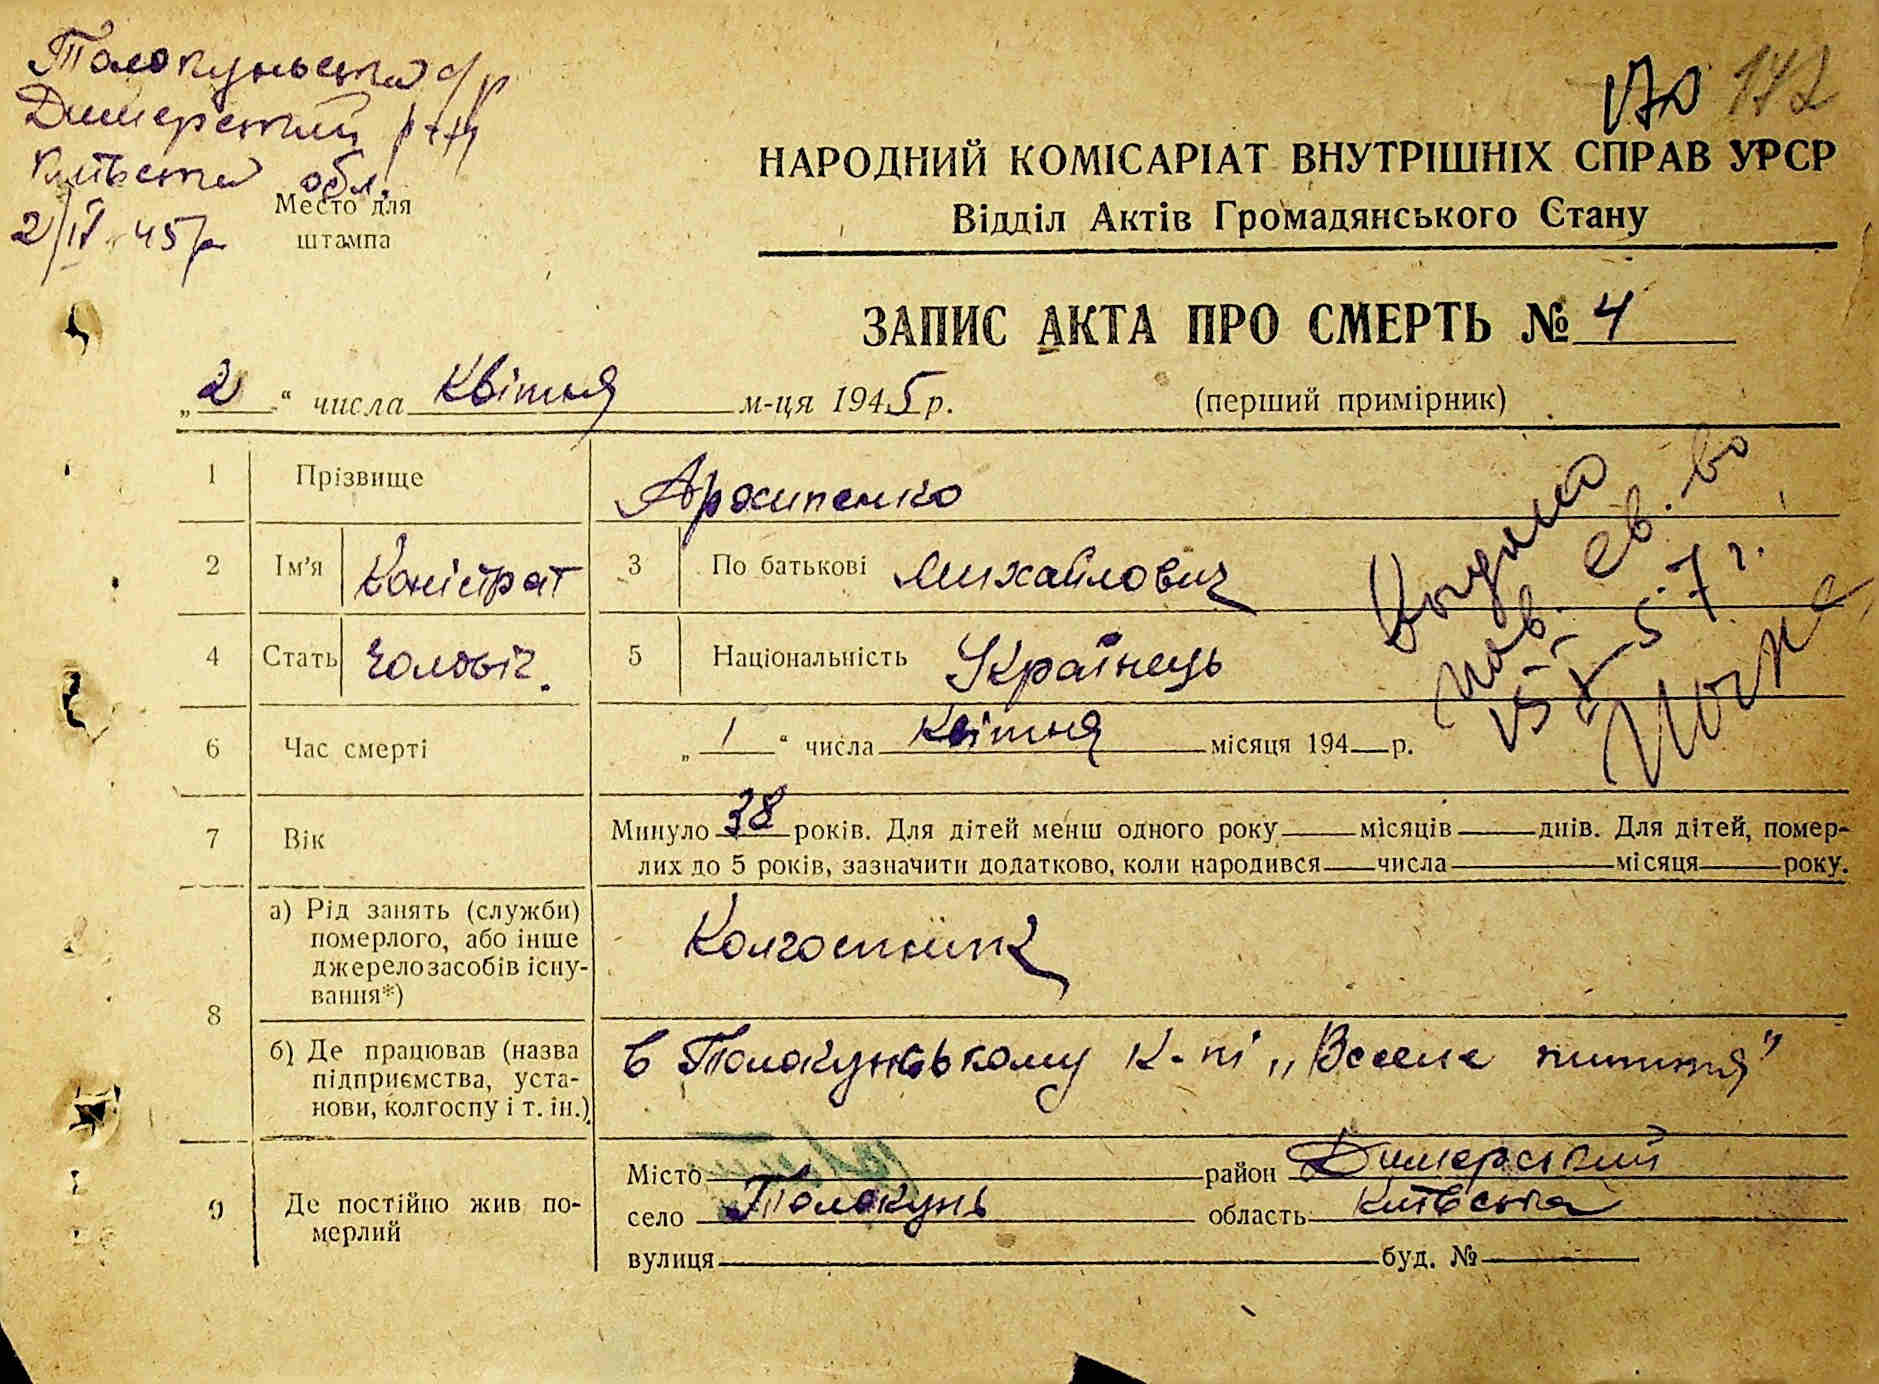 Толокунська с/р
Димерський р-н
Київська обл.
2/IV 45 р
Место для
штампа
170 172
НАРОДНИЙ КОМІСАРІАТ ВНУТРІШНІХ СПРАВ УРСР
Відділ Актів Громадянського Стану
ЗАПИС АКТА ПРО СМЕРТЬ № 4
„2“ числа Квітня м-ця 1945 р. (перший примірник)
1 Прізвище Архипенко
2 Ім'я Каністрат 3 По батькові Михайлович
4 Стать Чоловіч. 5 Національність Українець
Выдано
пов. св. во
15-X-57 г.
6 Час смерті „1“ числа Квітня місяця 194 р.
7 Вік Минуло 38 років. Для дітей менш одного року місяців днів. Для дітей, помер-
лих до 5 років, зазначити додатково, коли народився числа місяця року.
8 а) Рід занять (служби)
померлого, або інше
джерело засобів існу-
вання*)
Колгоспник
б) Де працював (назва
підприємства, уста-
нови, колгоспу і т. ін.)
в Толокунському к-пі „Веселе життя"
9 Де постійно жив по-
мерлий
Місто район Димерський
село Толокунь область Київська
вулиця буд. №